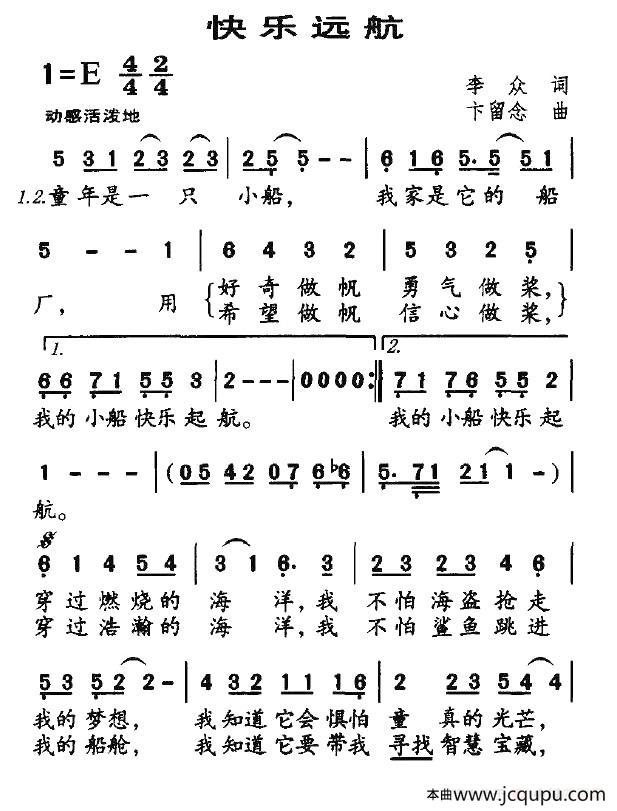 快乐远航
1=E 4/4 2/4
李众 词
动感活泼地
卞留念 曲
5 31 23 23 | 25 5 - - | 6 16 5. 5 51 |
1.2.童年是一只 小船， 我家是它的船
5 - - 1 | 6 4 3 2 | 5 3 2 5 |
厂， 用 {好奇做帆 勇气做桨，
希望做帆 信心做桨，}
1. 2.
66 71 55 3 | 2 - - - | 0000 :‖ 71 76 55 2 |
我的小船快乐起航。 我的小船快乐起
1 - - - | (05 42 07 6♭6 | 5. 71 21 1 -) |
航。
6 1 4 54 | 3 1 6. 3 | 2 23 24 6 |
穿过燃烧的海洋，我不怕海盗抢走
穿过浩瀚的海洋，我不怕鲨鱼跳进
53 52 2 - | 4 32 11 16 | 2 223 54 4 |
我的梦想， 我知道它会惧怕童真的光芒，
我的船舱， 我知道它要带我寻找智慧宝藏，
本曲 www.jcqupu.com